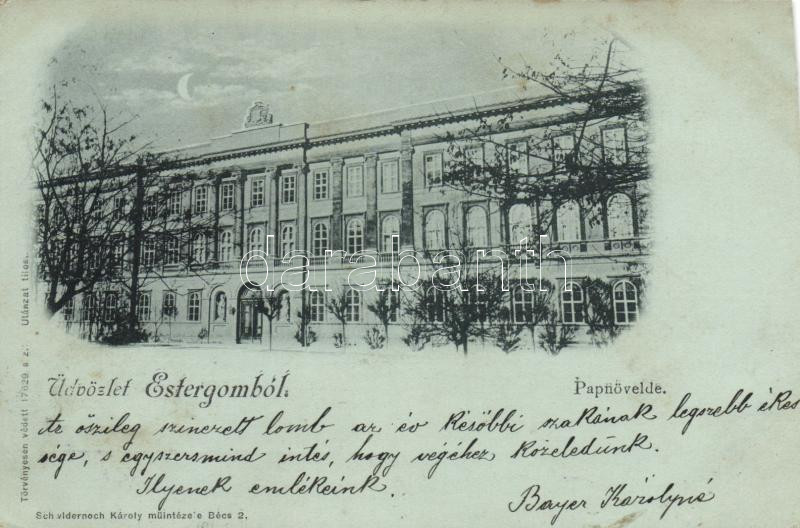 darabanth
Üdvözlet Estergomból.
Papnövelde.
Az őszileg szinezett lomb az év későbbi szakának legszebb ékes
sége, s egyszersmind intés, hogy végéhez közeledünk.
Ilyenek emlékeink.
Bayer Károlyné
Schwidernoch Károly műintézete Bécs 2.
Törvényesen védett 17629 s z.: Utánzat tilos.